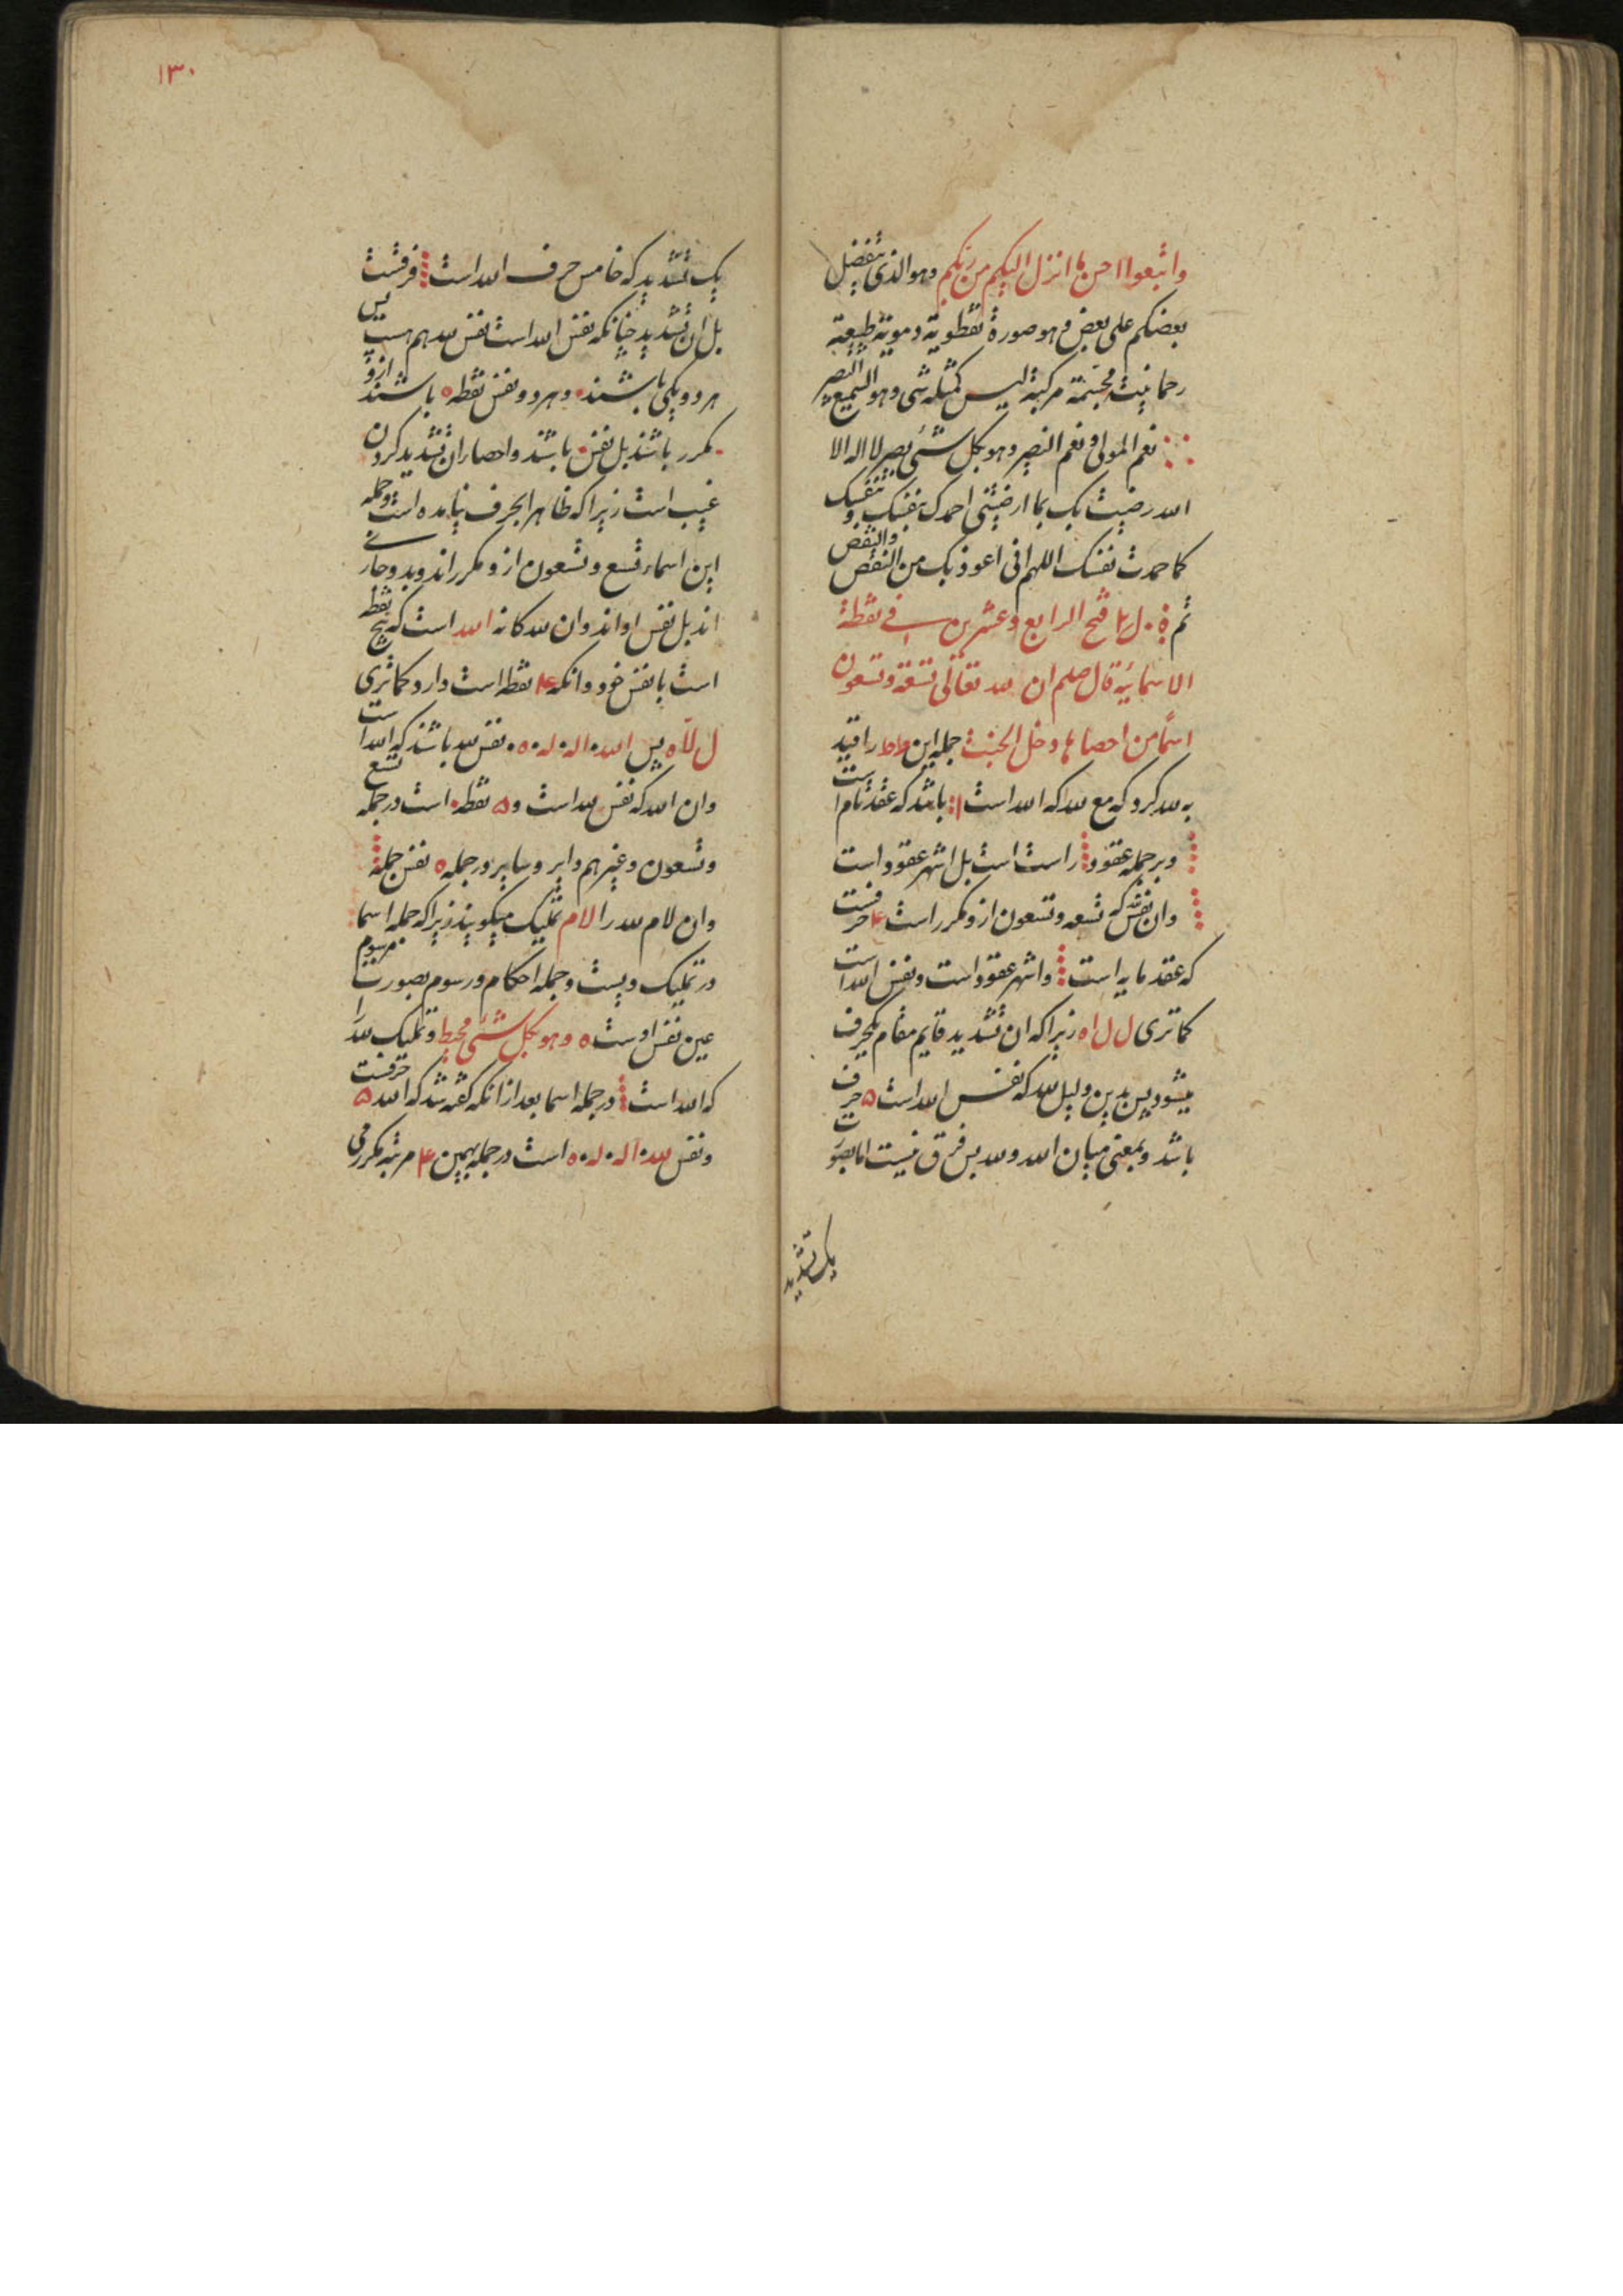 واتبعوا احسن ما انزل الیکم من ربکم وهو الذی یتفضل
بعضکم علی بعض وهو صورة نقطویة دمویة طبیعیة
رحمانیت مجتمة مرکبة لیس کمثله شی وهو السمیع البصیر
نعم المولی ونعم النصیر وهو بکل شئ بصیر لا اله الا
الله رضیت بک بما ارضیتنی احمدک بنفسک و نفسک
کما حمدت نفسک اللهم انی اعوذ بک من النقص والنقض
ثم فتح الرابع وعشرین فی نقطة
الاسمائیة قال صلعم ان لله تعالی تسعة وتسعون
اسماً من احصاها دخل الجنة جمله این را قید
به لله کرد که مع لله که الله است باشد که عقد تام است
وبر جمله عقود راست است بل اشهر عقود است
وان نفس که تسعه وتسعون ازو مکرر است ۴ حرفست
که عقد مایه است واشهر عقود است ونفس الله است
کما تری ل ل ا ه زیرا که ان تشدید قایم مقام یکحرف
میشود پس بدین دلیل لله که نفس الله است ۵ حرف
باشد وبمعنی میان الله ولله پس فرق نیست اما بصورت
یک تشدید
۱۳۰
یک تشدید که خامس حرف الله است فرقست
بل ان تشدید چنانکه نفس الله است نفس لله هم هست پس
هر دو یکی باشند وهر دو نفس نقطه ه باشند ازو
مکرر باشند بل نفس باشند واحصار ان تشدید کردن
غیب است زیرا که ظاهر الحرف نیامده است وجمله
این اسماء تسع وتسعون ازو مکرر اند وبدو جاری
اند بل نفس او اند وان لله کانه الله است که پنج نقطه
است با نفس خود وانکه ۴ نقطه است دارد کما تری
ل لّا ه پس الله • اله • له • ه • نفس لله باشند که الله است
وان الله که نفس لله است و ۵ نقطه است در جمله تسع
وتسعون وغیرهم دایر وسایر در جمله ه نفس جمله
وان لام لله را لام تملیک میکویند زیرا که جمله اسما
در تملیک ویست وجمله احکام ورسوم بصورت مرسوم
عین نفس اوست ه وهو بکل شئ محیط وتملیک لله را
که الله است در جمله اسما بعد ازانکه کفته شد که الله ۵ حرفست
ونفس لله • اله • له • ه است در جمله بهمین ۴ مرتبه مکرر می